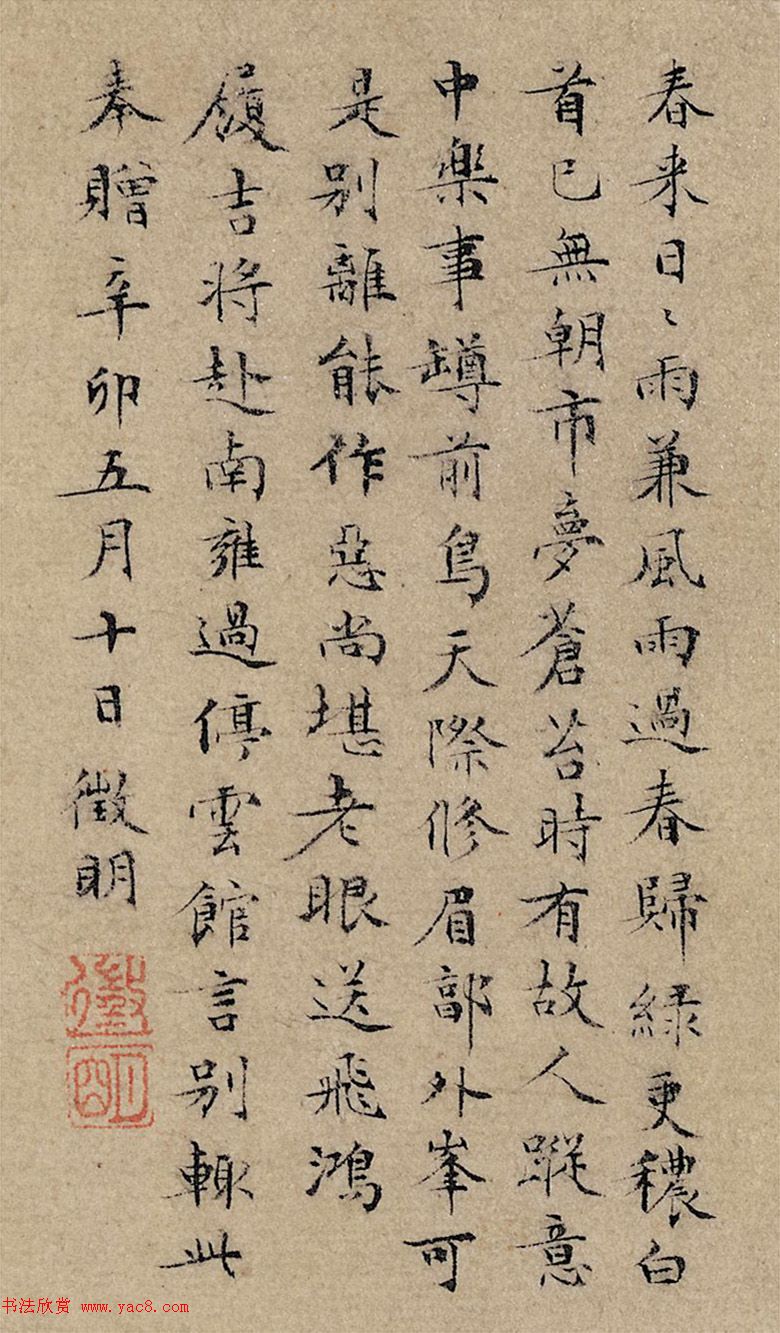 春来日〻雨兼風雨過春歸綠更穠白
首已無朝市夢蒼苔時有故人蹤意
中樂事罇前鳥天際修眉郭外峯可
是别離能作惡尚堪老眼送飛鴻
履吉将赴南雍過停雲館言别輙此
奉贈辛卯五月十日徵明
徵
明
书法欣赏 www.yac8.com